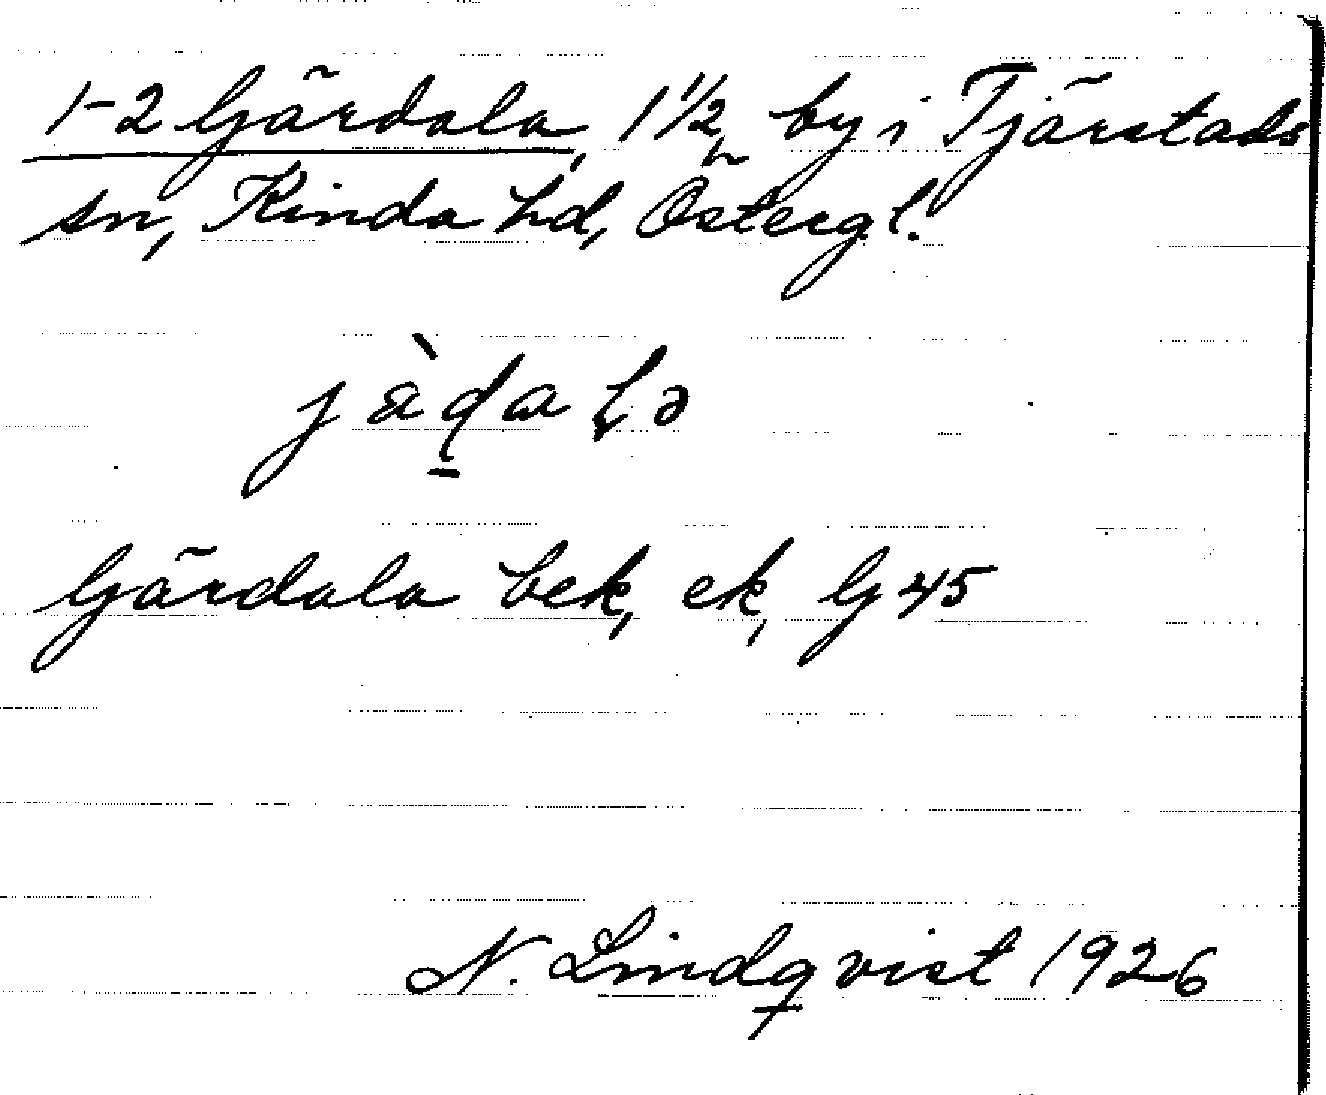 1-2 Gärdala, 1 1/2, by i Tjärstads
sn, Kinda hd, Östergl.
Gärdala bek, ek, G 45
N. Lindqvist 1926